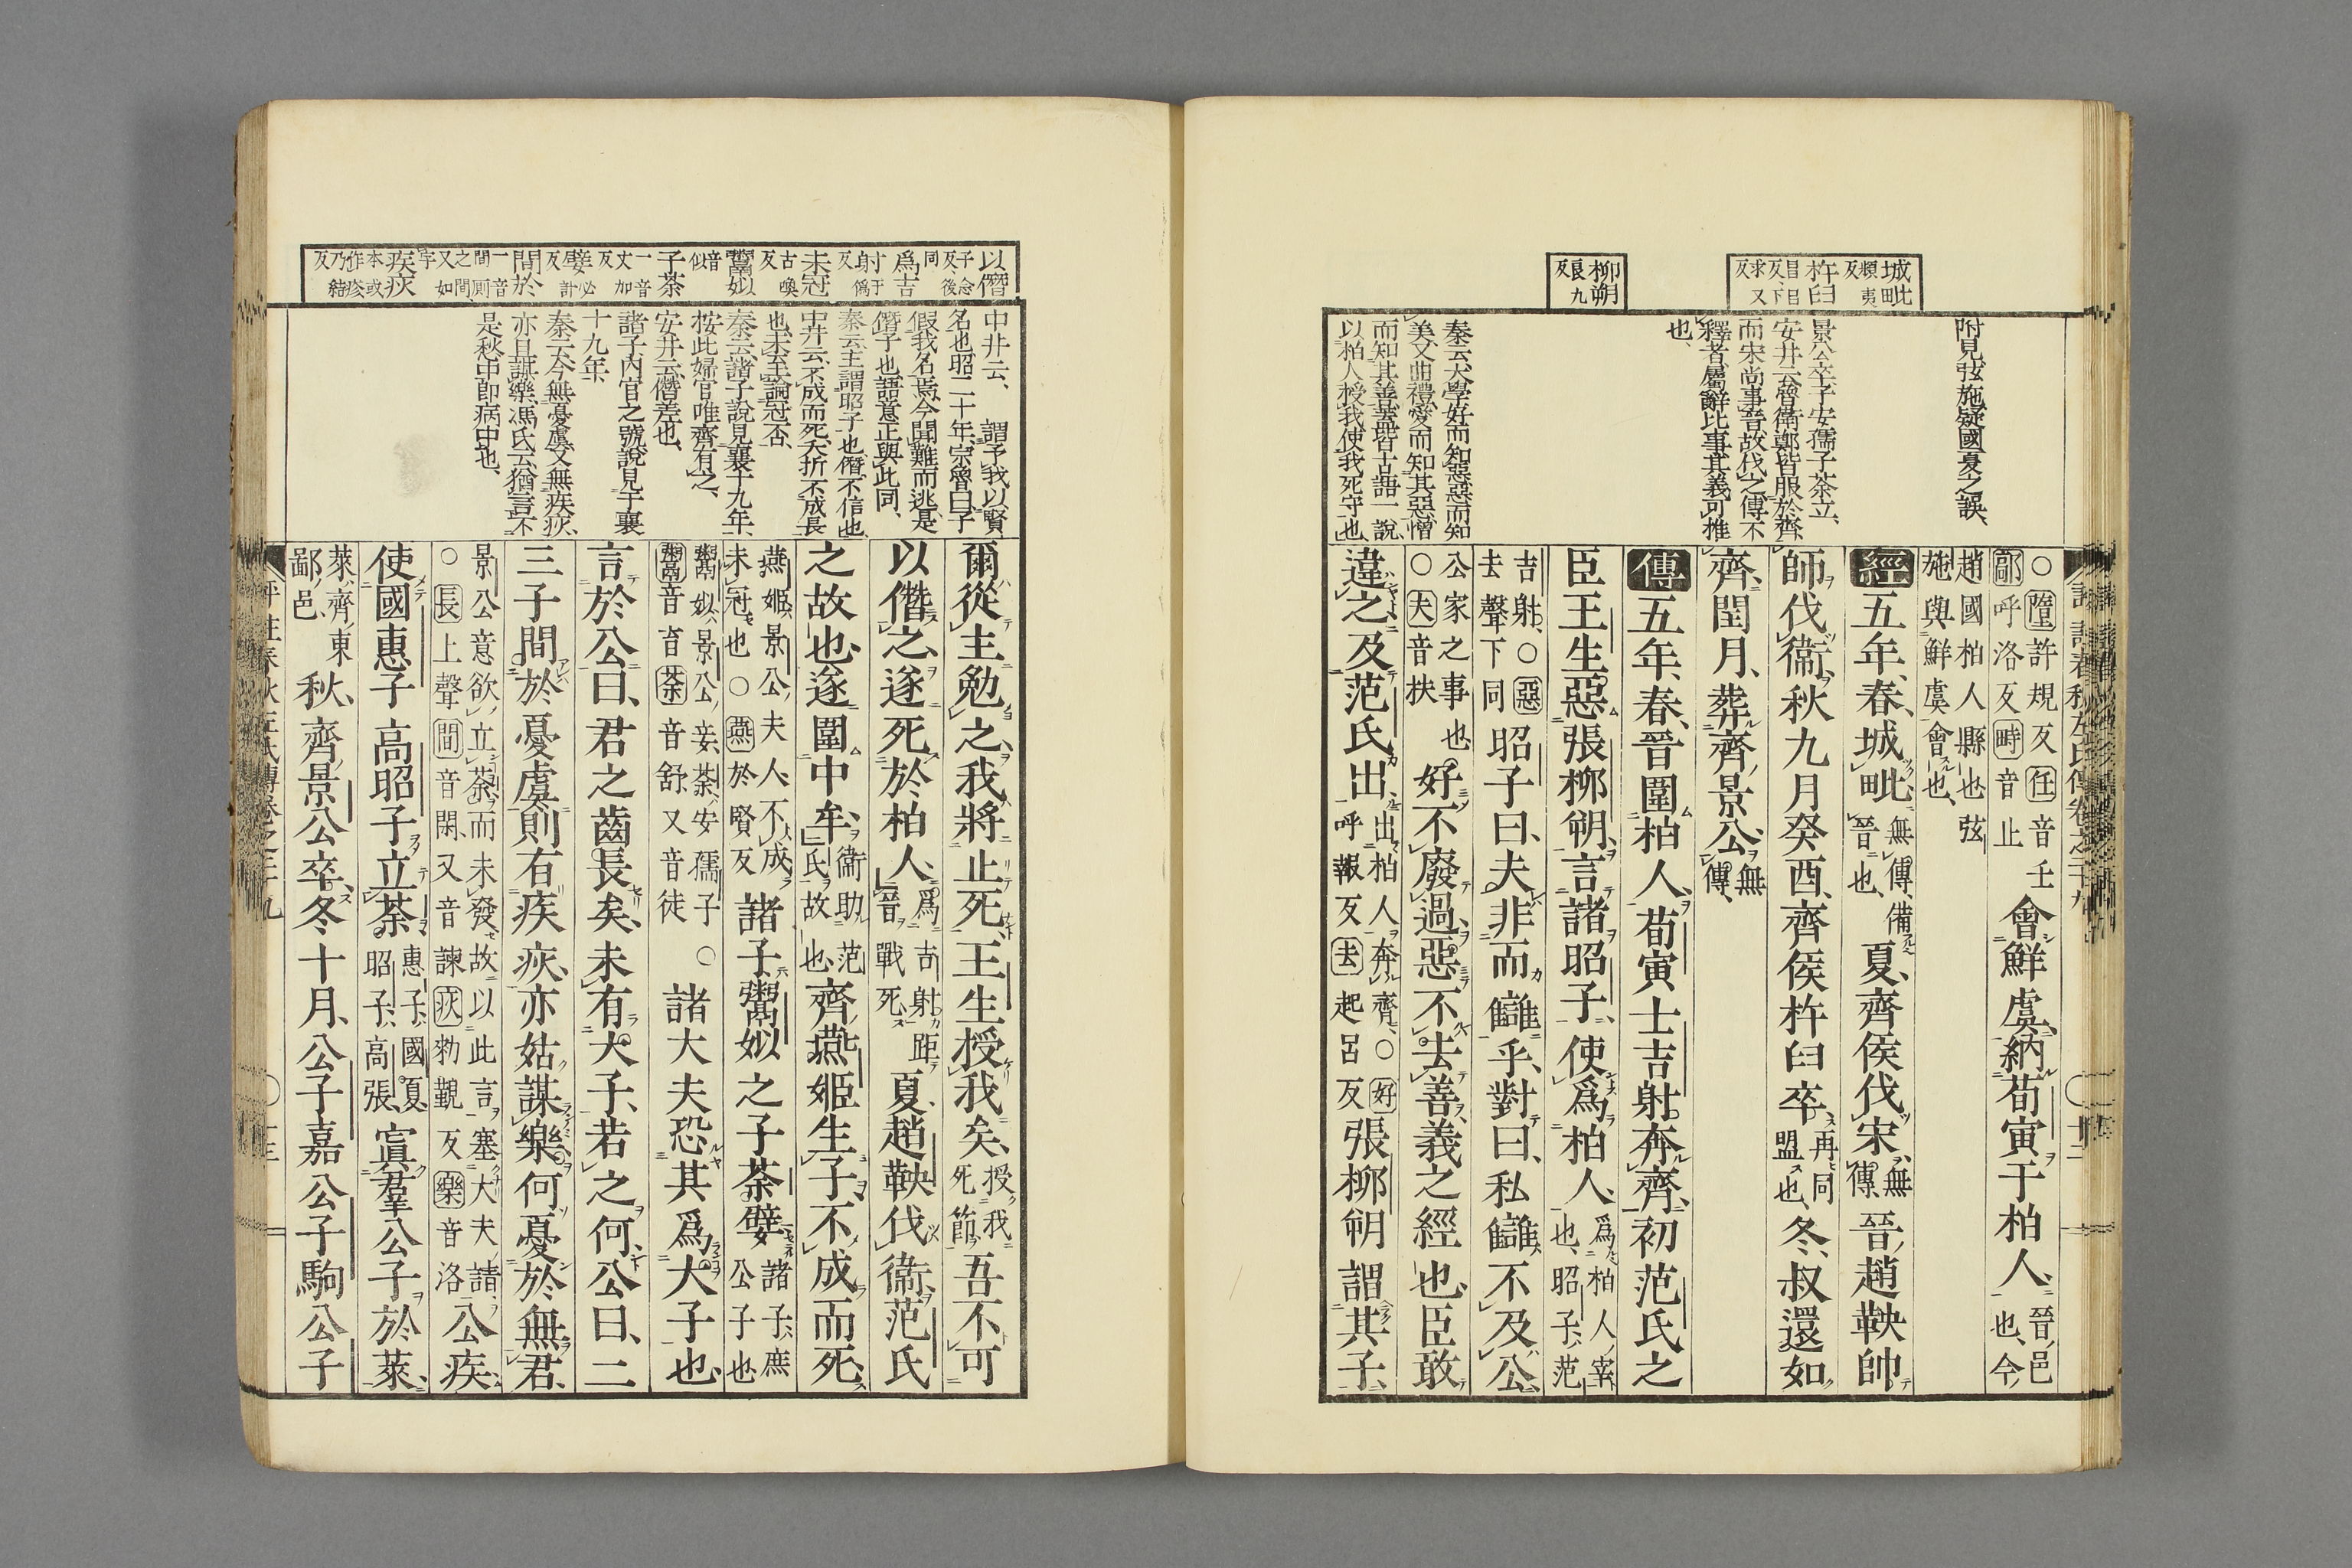 城毗
頻夷
反
杵臼
昌呂
反下
求又
反
柳朔
良九
反
附見弦施疑國夏之誤、
景公卒子安孺子荼立、
安井云魯衛鄭皆服於齊、
而宋尚事晉故伐之傳不
釋者屬辭比事其義可推
也、
秦云大學好而知惡惡而知
美又曲禮愛而知其惡憎
而知其善蓋皆古語一說、
以柏人授我使我死守也、
○墮許規反任音壬
鄗呼洛反畤音止
會鮮虞、納荀寅于柏人、
晉邑
也、今
趙國柏人縣也弦
施與鮮虞會也、
經五年、春、城毗、
無傳、備
晉也、
夏、齊侯伐宋、
無
傳、
晉趙鞅帥
師伐衞、秋九月癸酉、齊侯杵臼卒、
再同
盟也、
冬、叔還如
齊、閏月、葬齊景公、
無
傳、
傳五年、春、晉圍柏人、荀寅士吉射奔齊、初范氏之
臣王生惡張柳朔、言諸昭子、使爲柏人、
爲柏人宰
也、昭子、范
吉射、○惡
去聲下同
昭子曰、夫非而讎乎、對曰、私讎不及公、
公家之事也
○夫音扶
好不廢過、惡不去善、義之經也、臣敢
違之、及范氏出、
出柏人奔齊、○好
呼報反去起呂反
張柳朔謂其子、
以僭
子念
反後
同
爲吉
射于
反僞
未冠
古喚
反
鬻姒
音
似
子荼
一音
丈加
反
嬖必
反計
間於
一音
間則
之間
又如
字
疾疢
本或
作疹
乃結
反
中井云、謂予我以賢
名也昭二十年宗魯曰子
假我名焉今聞難而逃是
僭子也語意正與此同、
秦云主謂昭子也僭不信也、
中井云不成而死夭折不成長
也未至論冠否、
秦云諸子說見襄十九年、
按此婦官唯齊有之、
安井云僭差也、
諸子內官之號說見于襄
十九年、
秦云今無憂虞又無疾疢、
亦且謀樂馮氏云猶言不
是秋中卽病中也、
爾從主勉之、我將止死、王生授我矣、
授我
死節
吾不可
以僭之、遂死於柏人、
爲吉射距
晉戰死
夏、趙鞅伐衞、范氏
之故也、遂圍中牟、
衞助范
氏故也、
齊燕姬生子、不成而死、
燕姬、景公夫人、不成
未冠也○燕於賢反
諸子鬻姒之子荼嬖、
諸子、庶
公子也
鬻姒、景公妾、荼、安孺子○
鬻音育荼音舒、又音徒
諸大夫恐其爲大子也、
言於公曰、君之齒長矣、未有大子、若之何、公曰、二
三子間於憂虞、則有疾疢、亦姑謀樂何憂於無君、
景公意欲立荼而未發故以此言塞大夫請
○長上聲間音閑又音諫疢勑覲反樂音洛
公疾、
使國惠子高昭子立荼、
惠子、國夏、
昭子、高張、
寘羣公子於萊、
萊、齊東
鄙邑、
秋、齊景公卒、冬十月、公子嘉公子駒公子